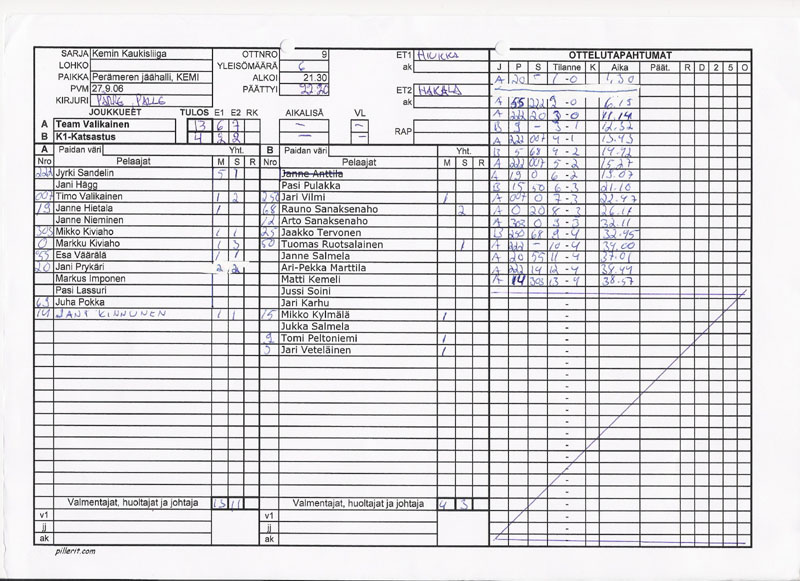 SARJA Kemin Kaukisliiga OTTNRO 9 ET1
LOHKO YLEISÖMÄÄRÄ 6 ak
PAIKKA Perämeren jäähalli, KEMI ALKOI 21.30
PVM 27.9.06 PÄÄTTYI 22.20 ET2 HAKALA
KIRJURI ak
OTTELUTAPAHTUMAT
J P S Tilanne K Aika Päät. R D 2 5 O
A 20 - 1-0 1.30
A 55 222 2-0 6.15
A 222 20 3-0 11.14
B 9 - 3-1 12.52
A 222 007 4-1 13.43
B 5 68 4-2 14.42
A 222 007 5-2 15.27
A 19 0 6-2 19.07
B 15 50 6-3 21.10
A 007 0 7-3 22.47
A 0 20 8-3 26.11
A 303 0 9-3 32.11
B 250 68 9-4 32.45
A 222 - 10-4 34.00
A 20 55 11-4 37.01
A 222 14 12-4 38.44
A 14 303 13-4 38.57
JOUKKUEET TULOS E1 E2 RK AIKALISÄ VL
A Team Valikainen 13 6 7 – –
B K1-Katsastus 4 2 2 – – RAP
A Paidan väri Yht.
Nro Pelaajat M S R
222 Jyrki Sandelin 5 1
Jani Hägg
007 Timo Valikainen 1 2
19 Janne Hietala 1
Janne Nieminen
303 Mikko Kiviaho 1 1
0 Markku Kiviaho 1 3
55 Esa Väärälä 1 1
20 Jani Prykäri 2 2
Markus Imponen
Pasi Lassuri
63 Juha Pokka
14 JANI KINNUNEN 1 1
Valmentajat, huoltajat ja johtaja 13 11
v1
jj
ak
B Paidan väri Yht.
Nro Pelaajat M S R
Janne Anttila
Pasi Pulakka
250 Jari Vilmi 1
68 Rauno Sanaksenaho 2
12 Arto Sanaksenaho
25 Jaakko Tervonen
50 Tuomas Ruotsalainen 1
Janne Salmela
Ari-Pekka Marttila
Matti Kemeli
Jussi Soini
Jari Karhu
15 Mikko Kylmälä 1
Jukka Salmela
9 Tomi Peltoniemi 1
5 Jari Veteläinen 1
Valmentajat, huoltajat ja johtaja 4 3
v1
jj
ak
pillerit.com